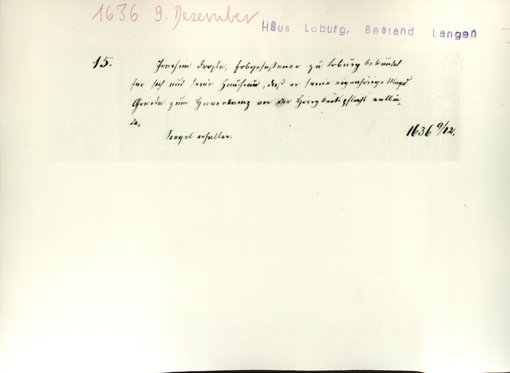 1636 9. Dezember
Haus Loburg, Bestand Langen
15. Joachim Droste, Erbgesessener zu Loburg bekundet
für sich und seine Hausfrau, daß er seine eigenhörige Magd
Greta zum von der Hörigkeitspflicht entlä-
Siegel erhalten.
1636 9/12.